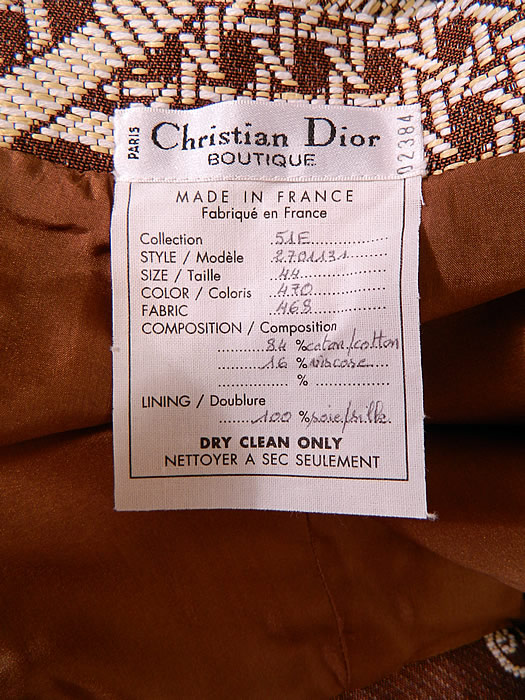 PARIS
Christian Dior
BOUTIQUE
02384
MADE IN FRANCE
Fabriqué en France
Collection 51E
STYLE / Modèle 2701131
SIZE / Taille 44
COLOR / Coloris 470
FABRIC 468
COMPOSITION / Composition
84 % coton/cotton
16 % viscose
%
LINING / Doublure
100 % soie/silk
DRY CLEAN ONLY
NETTOYER A SEC SEULEMENT